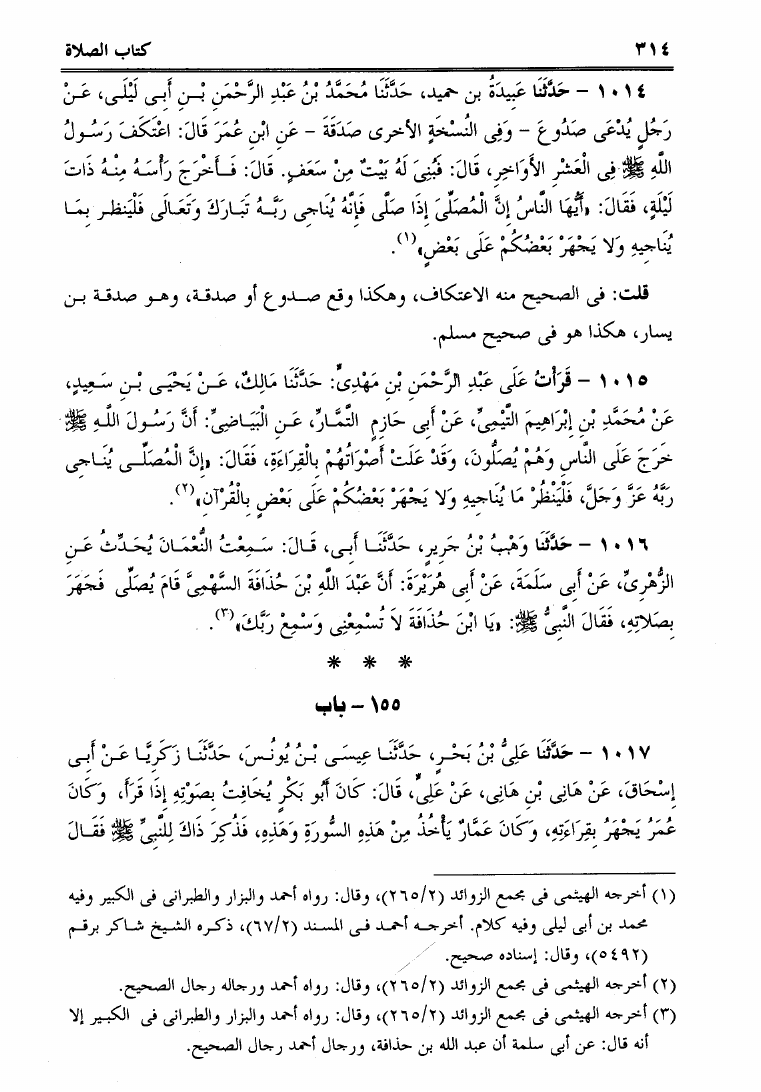 ٣١٤ كتاب الصلاة
١٠١٤ – حَدَّثَنَا عَبِيدَةُ بن حميد، حَدَّثَنَا مُحَمَّدُ بْنُ عَبْدِ الرَّحْمَنِ بْنِ أَبِى لَيْلَى، عَنْ
رَجُلٍ يُدْعَى صَدُوعَ – وَفِى النُّسْخَةِ الأخرى صَدَقَةَ – عَنِ ابْنِ عُمَرَ قَالَ: اعْتَكَفَ رَسُولُ
اللَّهِ ﷺ فِى الْعَشْرِ الأَوَاخِرِ، قَالَ: فَبُنِىَ لَهُ بَيْتٌ مِنْ سَعَفٍ. قَالَ: فَأَخْرَجَ رَأْسَهُ مِنْهُ ذَاتَ
لَيْلَةٍ، فَقَالَ: «أَيُّهَا النَّاسُ إِنَّ الْمُصَلِّىَ إِذَا صَلَّى فَإِنَّهُ يُنَاجِى رَبَّهُ تَبَارَكَ وَتَعَالَى فَلْيَنظر بِمَا
يُنَاجِيهِ وَلاَ يَجْهَرْ بَعْضُكُمْ عَلَى بَعْضٍ»(١).
قلت: فى الصحيح منه الاعتكاف، وهكذا وقع صدوع أو صدقة، وهو صدقة بن
يسار، هكذا هو فى صحيح مسلم.
١٠١٥ – قَرَأْتُ عَلَى عَبْدِ الرَّحْمَنِ بْنِ مَهْدِىٍّ: حَدَّثَنَا مَالِكٌ، عَنْ يَحْيَى بْنِ سَعِيدٍ،
عَنْ مُحَمَّدِ بْنِ إِبْرَاهِيمَ التَّيْمِىِّ، عَنْ أَبِى حَازِمٍ التَّمَّارِ، عَنِ الْبَيَاضِىِّ: أَنَّ رَسُولَ اللَّهِ ﷺ
خَرَجَ عَلَى النَّاسِ وَهُمْ يُصَلُّونَ، وَقَدْ عَلَتْ أَصْوَاتُهُمْ بِالْقِرَاءَةِ، فَقَالَ: «إِنَّ الْمُصَلِّى يُنَاجِى
رَبَّهُ عَزَّ وَجَلَّ، فَلْيَنْظُرْ مَا يُنَاجِيهِ وَلاَ يَجْهَرْ بَعْضُكُمْ عَلَى بَعْضٍ بِالْقُرْآنِ»(٢).
١٠١٦ – حَدَّثَنَا وَهْبُ بْنُ جَرِيرٍ، حَدَّثَنَا أَبِى، قَالَ: سَمِعْتُ النُّعْمَانَ يُحَدِّثُ عَنِ
الزُّهْرِىِّ، عَنْ أَبِى سَلَمَةَ، عَنْ أَبِى هُرَيْرَةَ: أَنَّ عَبْدَ اللَّهِ بْنَ حُذَافَةَ السَّهْمِىَّ قَامَ يُصَلِّى فَجَهَرَ
بِصَلاَتِهِ، فَقَالَ النَّبِىُّ ﷺ: «يَا ابْنَ حُذَافَةَ لاَ تُسْمِعْنِى وَسْمِعْ رَبَّكَ»(٣).
* * *
١٥٥ – باب
١٠١٧ – حَدَّثَنَا عَلِىُّ بْنُ بَحْرٍ، حَدَّثَنَا عِيسَى بْنُ يُونُسَ، حَدَّثَنَا زَكَرِيَّا عَنْ أَبِى
إِسْحَاقَ، عَنْ هَانِى بْنِ هَانِى، عَنْ عَلِىٍّ، قَالَ: كَانَ أَبُو بَكْرٍ يُخَافِتُ بِصَوْتِهِ إِذَا قَرَأَ، وَكَانَ
عُمَرُ يَجْهَرُ بِقِرَاءَتِهِ، وَكَانَ عَمَّارٌ يَأْخُذُ مِنْ هَذِهِ السُّورَةِ وَهَذِهِ، فَذُكِرَ ذَاكَ لِلنَّبِىِّ ﷺ فَقَالَ
(١) أخرجه الهيثمى فى مجمع الزوائد (٢٦٥/٢)، وقال: رواه أحمد والبزار والطبرانى فى الكبير وفيه
محمد بن أبى ليلى وفيه كلام. أخرجه أحمد فى المسند (٦٧/٢)، ذكره الشيخ شاكر برقم
(٥٤٩٢)، وقال: إسناده صحيح.
(٢) أخرجه الهيثمى فى مجمع الزوائد (٢٦٥/٢)، وقال: رواه أحمد ورجاله رجال الصحيح.
(٣) أخرجه الهيثمى فى مجمع الزوائد (٢٦٥/٢)، وقال: رواه أحمد والبزار والطبرانى فى الكبير إلا
أنه قال: عن أبى سلمة أن عبد الله بن حذافة، ورجال أحمد رجال الصحيح.